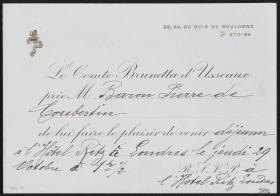 28, AV. DU BOIS DE BOULOGNE
670-84
Le Comte Brunetta d'Usseaux
prie M. Baron Pierre de
Coubertin
de lui faire le plaisir de venir déjeuner
à l'Hôtel Ritz à Londres, le jeudi 29
Octobre à 1 1/2
R. S. V. P. à
l'Hôtel Ritz Londres